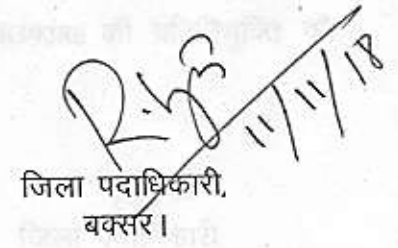 11/11/18
जिला पदाधिकारी,
बक्सर।